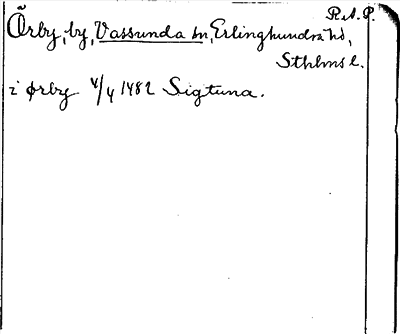 R.A.P.
Õrby, by, Vassunda sn, Erlinghundra hd,
Sthlms l.
i ørby 4/4 1482 Sigtuna.